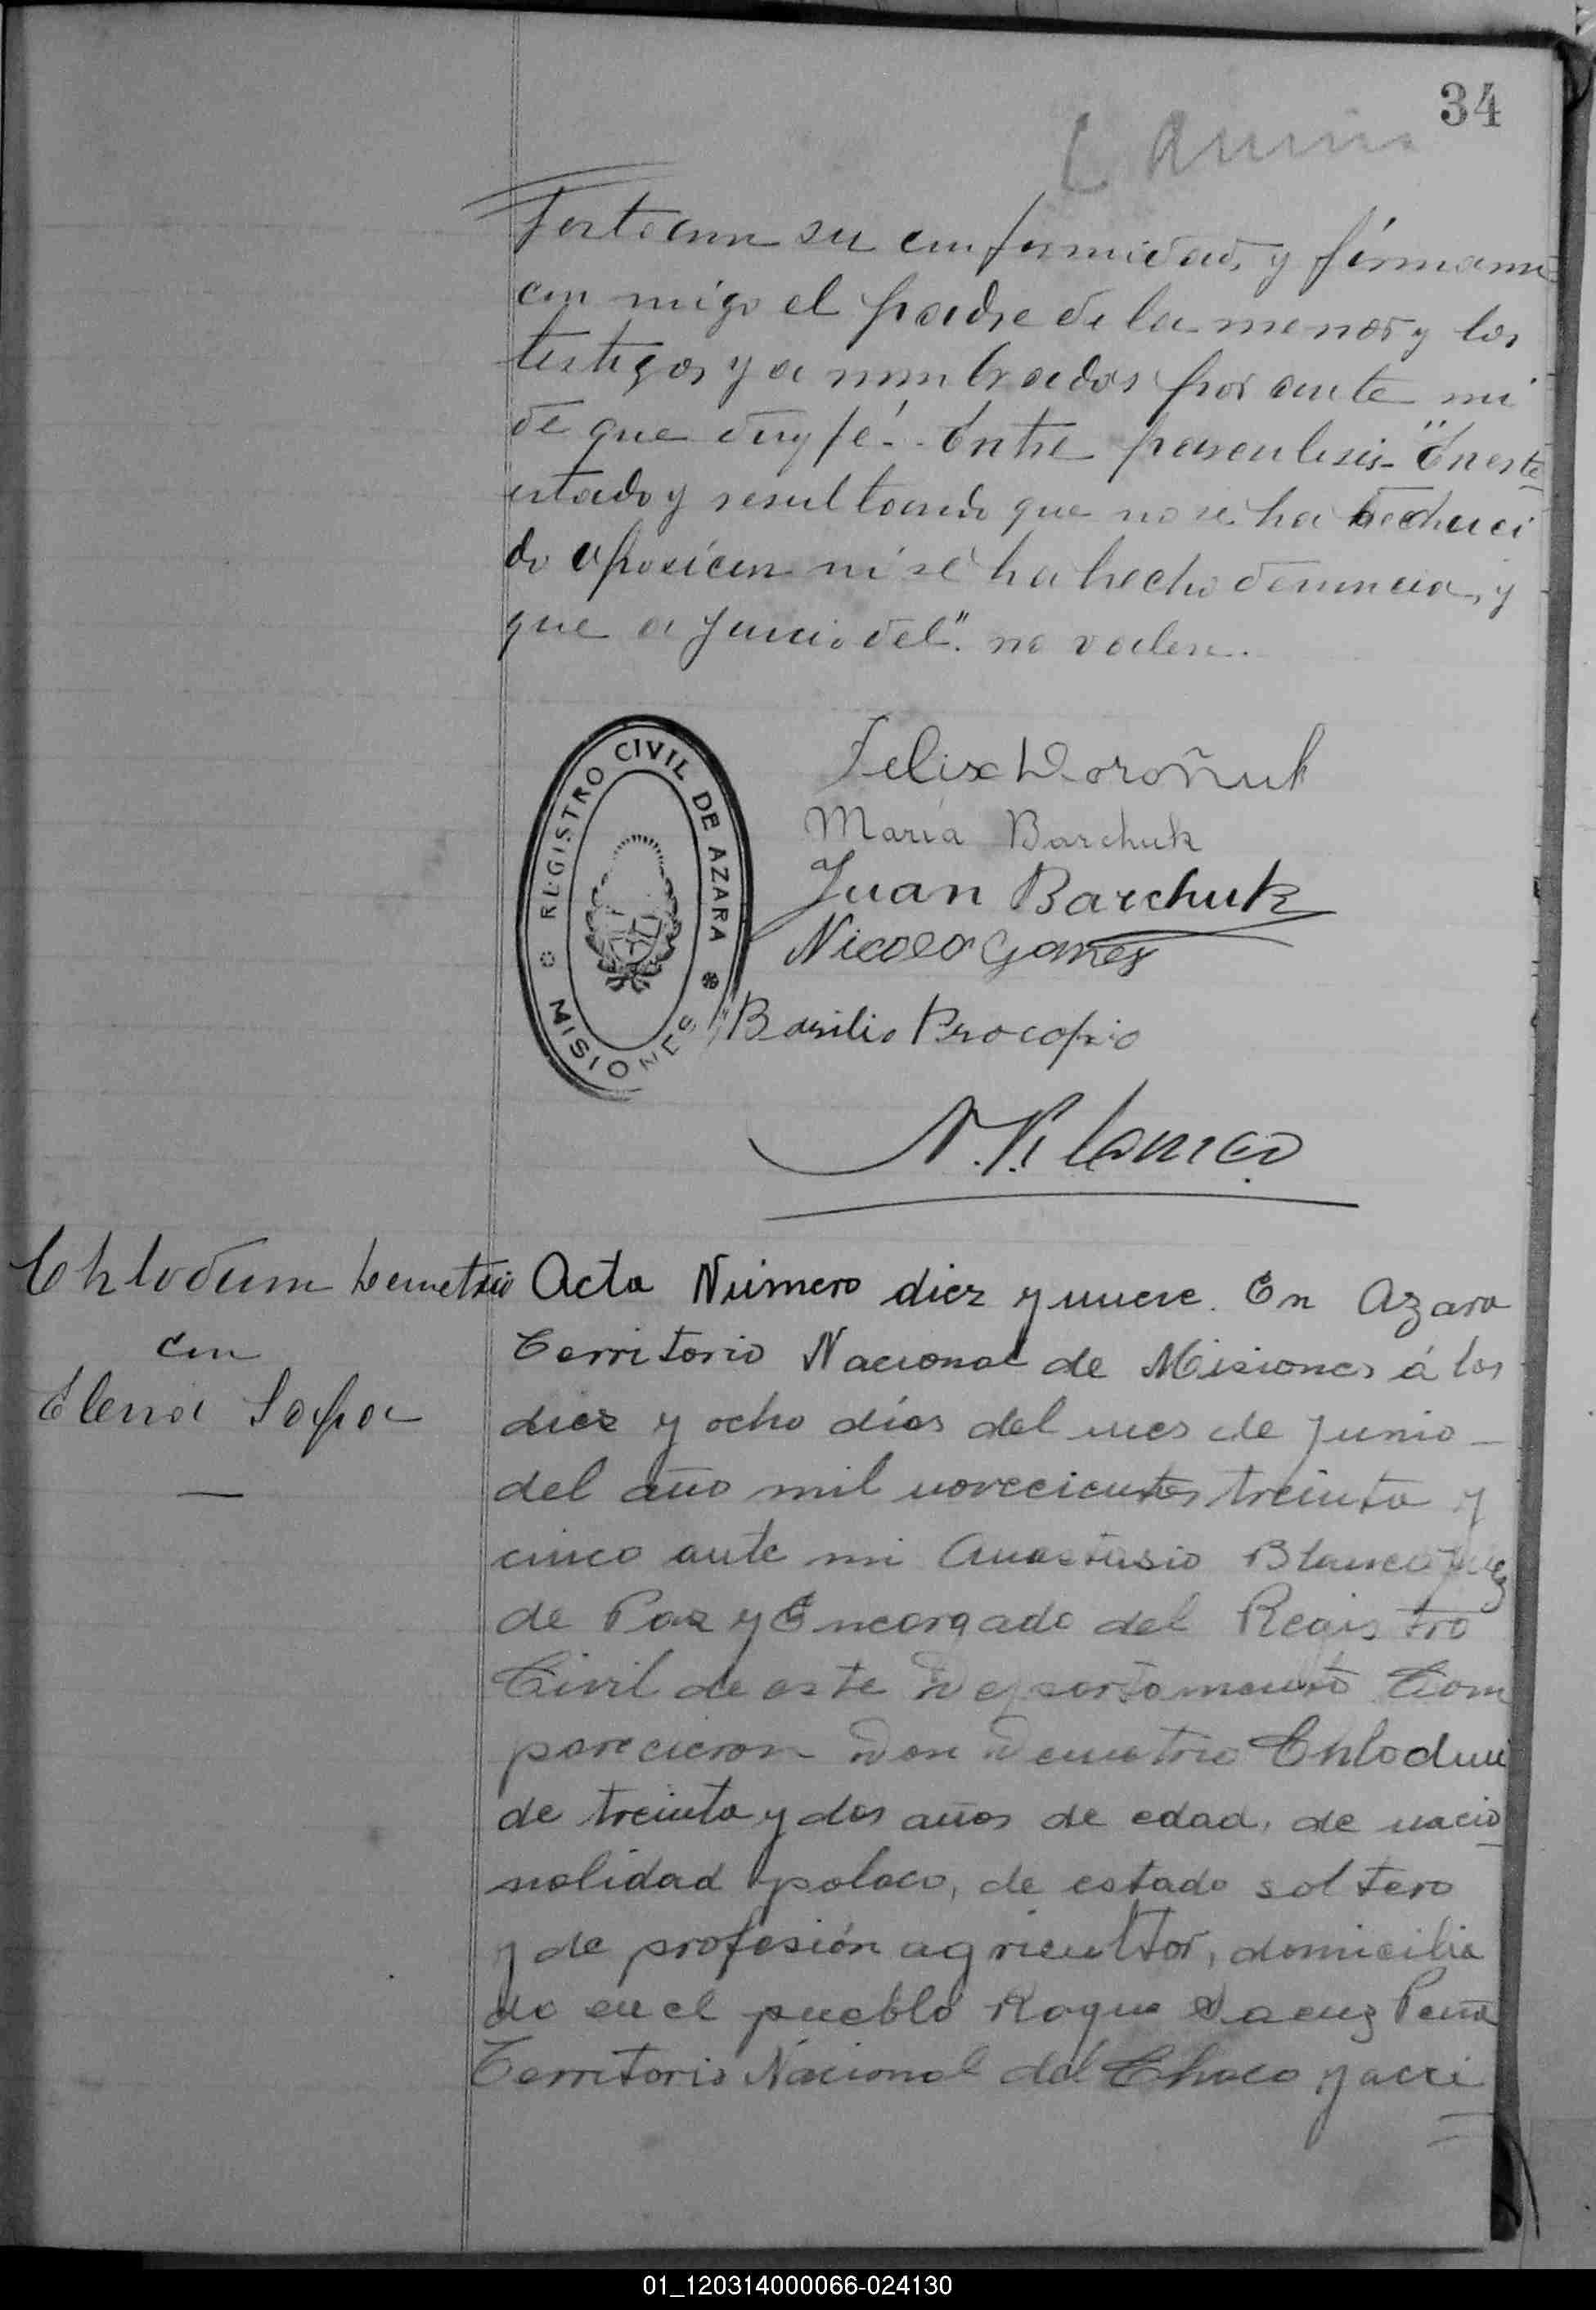 34
festaron su conformidad, y firmann
con migo el padre de la menor y los
testigos ya nombrados por ante mi
de que doy fé.- Entre parentesis- "En este
estado y resultando que no se ha deduci
do oposicion ni se ha hecho denuncia, y
que a juicio del". no valen.
REGISTRO CIVIL DE AZARA
MISIONES
Felix Doroñuk
Maria Barchuk
Juan Barchuk
Nicolas
Basilio Procopio
A. Blanco
Chlodum Demetrio
con
Elena Sapa
Acta Número diez y nueve. En Azara
Territorio Nacional de Misiones á los
diez y ocho días del mes de Junio
del año mil novecientos treinta y
cinco ante mi Anastasio Blanco Juez
de Paz y Encargado del Registro
Civil de este Departamento Com
parecieron Don Demetrio Chlodum
de treinta y dos años de edad, de nacio
nalidad polaco, de estado soltero
y de profesión agricultor, domicilia
do en el pueblo Roque Saenz Peña
Territorio Nacional del Chaco y acci
01_120314000066-024130